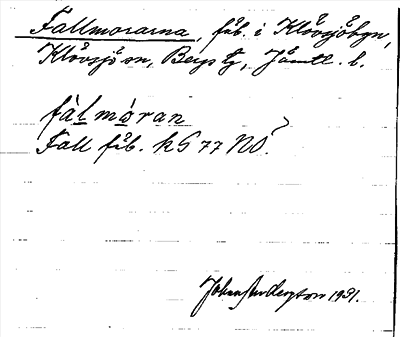 Fallmorarna, fäb. i Klövsjöbyn,
Klövsjö sn, Bergs tg, Jämtl. l.
fàlmòran
Fall fäb. k G 77 NO.
Johan 1931.